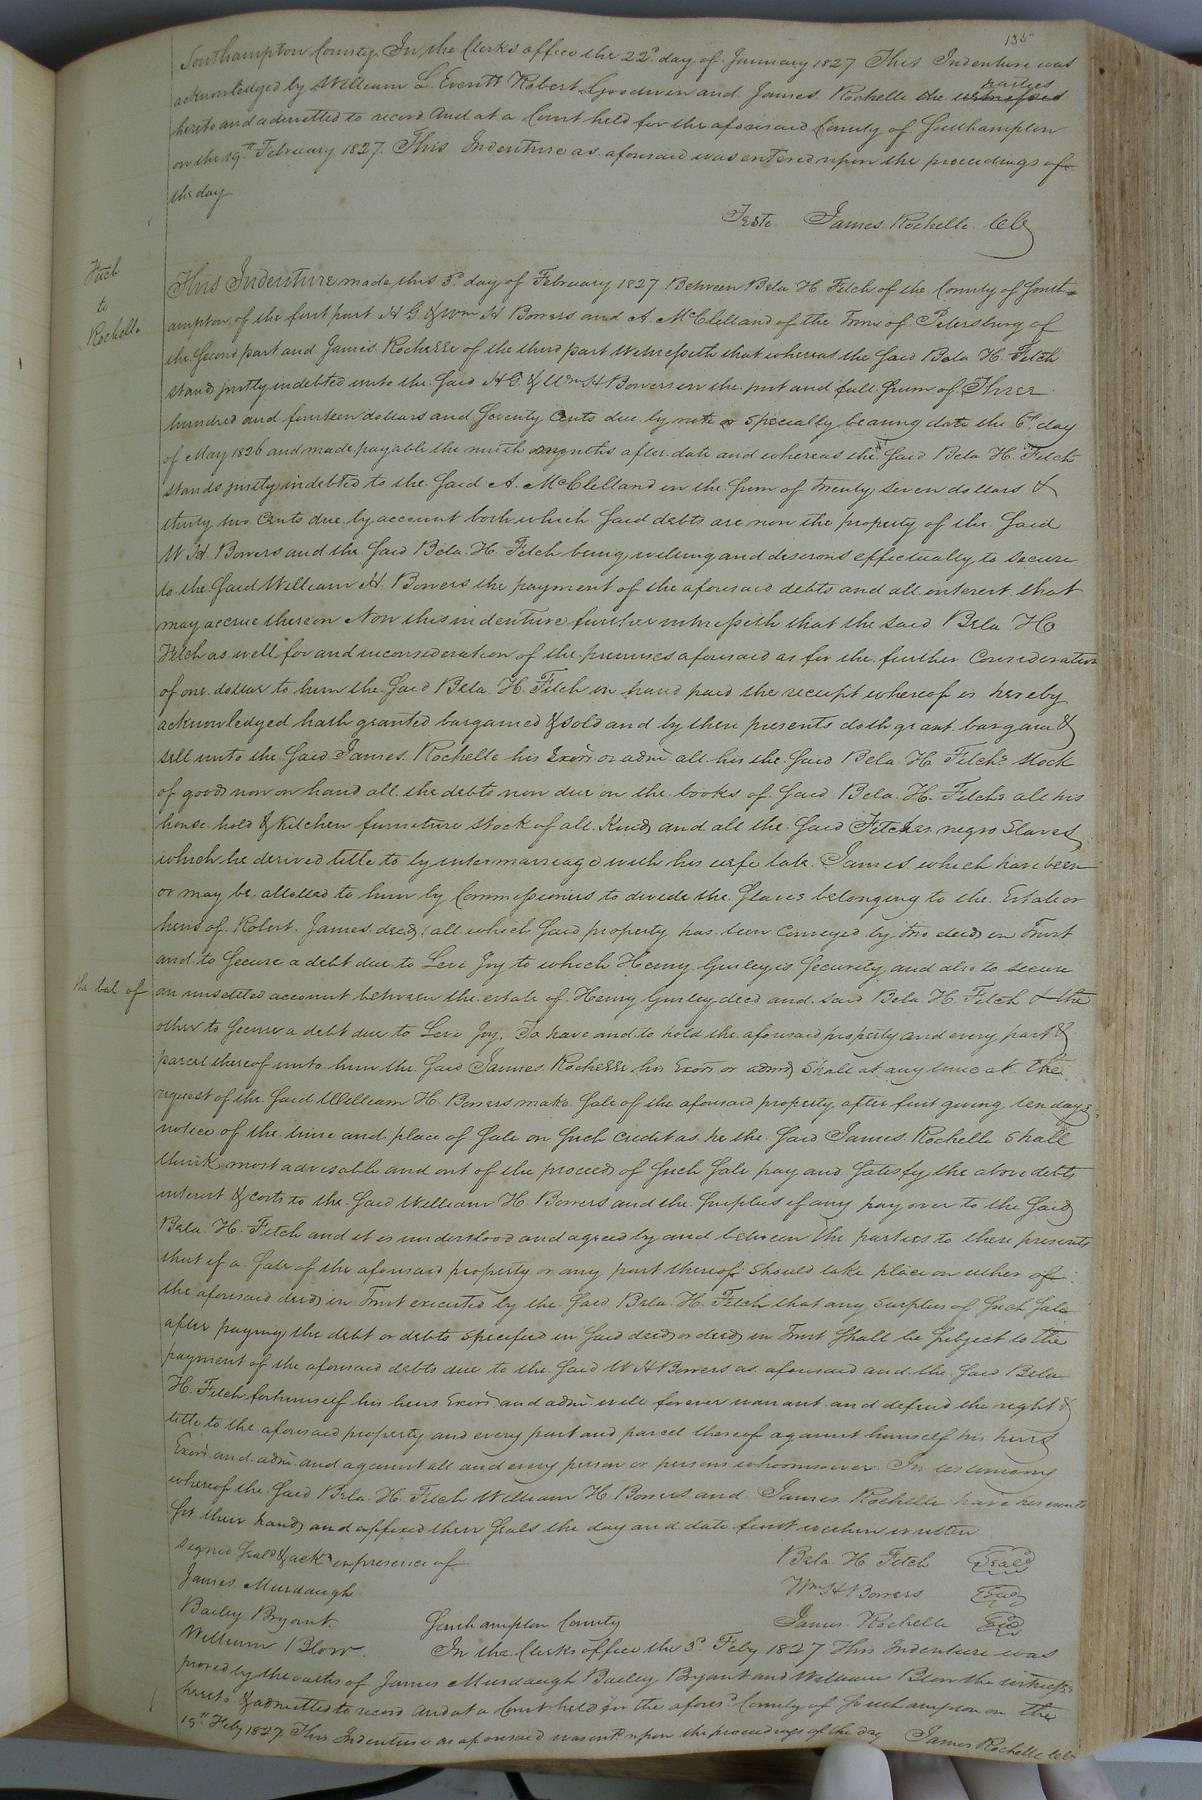 135
Southampton County. In the Clerks office the 22d day of January 1827 This Indenture was
parties
acknowledged by William L Everitt Robert Goodwin and James Rochelle the witnesses
hereto and admitted to record And at a Court held for the aforesaid County of Southampton
on the 19th February 1827. This Indenture as aforesaid was entered upon the proceedings of
the day
Teste James Rochelle Clk
Fitch
to
Rochelle
This Indenture made this 5th day of February 1827 Between Bela H. Fitch of the County of South=
ampton of the first part H G & Wm H Bowers and A McClelland of the Town of Petersburg of
the Second part and James Rochelle of the third part Witnesseth that whereas the Said Bela H. Fitch
stands justly indebted unto the Said H.G. & Wm H Bowers in the just and full Sum of Three
hundred and fourteen dollars and Seventy Cents due by note or specially bearing date the 6th day
of May 1826 and made payable the months after date and whereas the Said Bela H. Fitch
stands justly indebted to the Said A. McClelland in the Sum of twenty Seven dollars &
thirty two Cents due by account both which Said debts are now the property of the Said
W H Bowers and the Said Bela H. Fitch being willing and desirous effectually to secure
to the Said William H. Bowers the payment of the aforesaid debts and all interest that
may accrue thereon Now this indenture further witnesseth that the said Bela H
Fitch as well for and in consideration of the premises aforesaid as for the further Consideration
of one dollar to him the Said Bela H. Fitch in hand paid the receipt whereof is hereby
acknowledged hath granted bargained & sold and by these presents doth grant bargain &
sell unto the Said James Rochelle his Exors or adm all his the Said Bela H. Fitchs Stock
of goods now on hand all the debts now due on the books of Said Bela H. Fitchs all his
house hold & Kitchen furniture stock of all Kinds and all the Said Fitches negro Slaves
which he derived title to by intermarriage with his wife late James which have been
or may be allotted to him by Commissioners to divide the Slaves belonging to the Estate or
heirs of Robert James decd (all which Said property has been Conveyed by two deeds in Trust
and to Secure a debt due to Levi Joy to which Henry Gurley is Security and also to secure
the bal of
an unsettled account between the estate of Henry Gurley decd and said Bela H. Fitch & the
other to Secure a debt due to Levi Joy. To have and to hold the aforesaid property and every part &
parcel thereof unto him the Said James Rochelle his Exors or admrs Shall at any time at the
request of the Said William H. Bowers make Sale of the aforesaid property after first giving ten days
notice of the time and place of Sale on Such Credit as he the Said James Rochelle Shall
think most advisable and out of the proceeds of Such Sale pay and Satisfy the above debts
interest & costs to the Said William H. Bowers and the Surplus if any pay over to the Said
Bela H. Fitch and it is understood and agreed by and between the parties to these presents
that if a Sale of the aforesaid property or any part thereof should take place on either of
the aforesaid deeds in Trust executed by the Said Bela H. Fitch that any Surplus of Such Sale
after paying the debt or debts Specified in Said deed or deeds in Trust Shall be Subject to the
payment of the aforesaid debts due to the Said W H Bowers as aforesaid and the Said Bela
H. Fitch for himself his heirs Exors and adm will forever warrant and defend the right &
title to the aforesaid property and every part and parcel thereof against himself his heirs
Exors and adm and against all and every person or persons whomsoever In testimony
whereof the Said Bela H. Fitch William H. Bowers and James Rochelle have hereunto
Set their hands and affixed their Seals the day and date first written
Signed Seald & ackd in presence of
James Murdaugh
Bailey Bryant
William Blow.
Bela H Fitch Seal
Wm H Bowers Seal
James Rochelle Seal
Southampton County
In the Clerks office the 5th Feby 1827 This Indenture was
proved by the oaths of James Murdaugh Bailey Bryant and William Blow the witnesses
hereto & admitted to record and at a Court held for the aforesd County of Southampton on the
19th Feby 1827 This Indenture as aforesaid was entd upon the proceedings of the day James Rochelle Clk